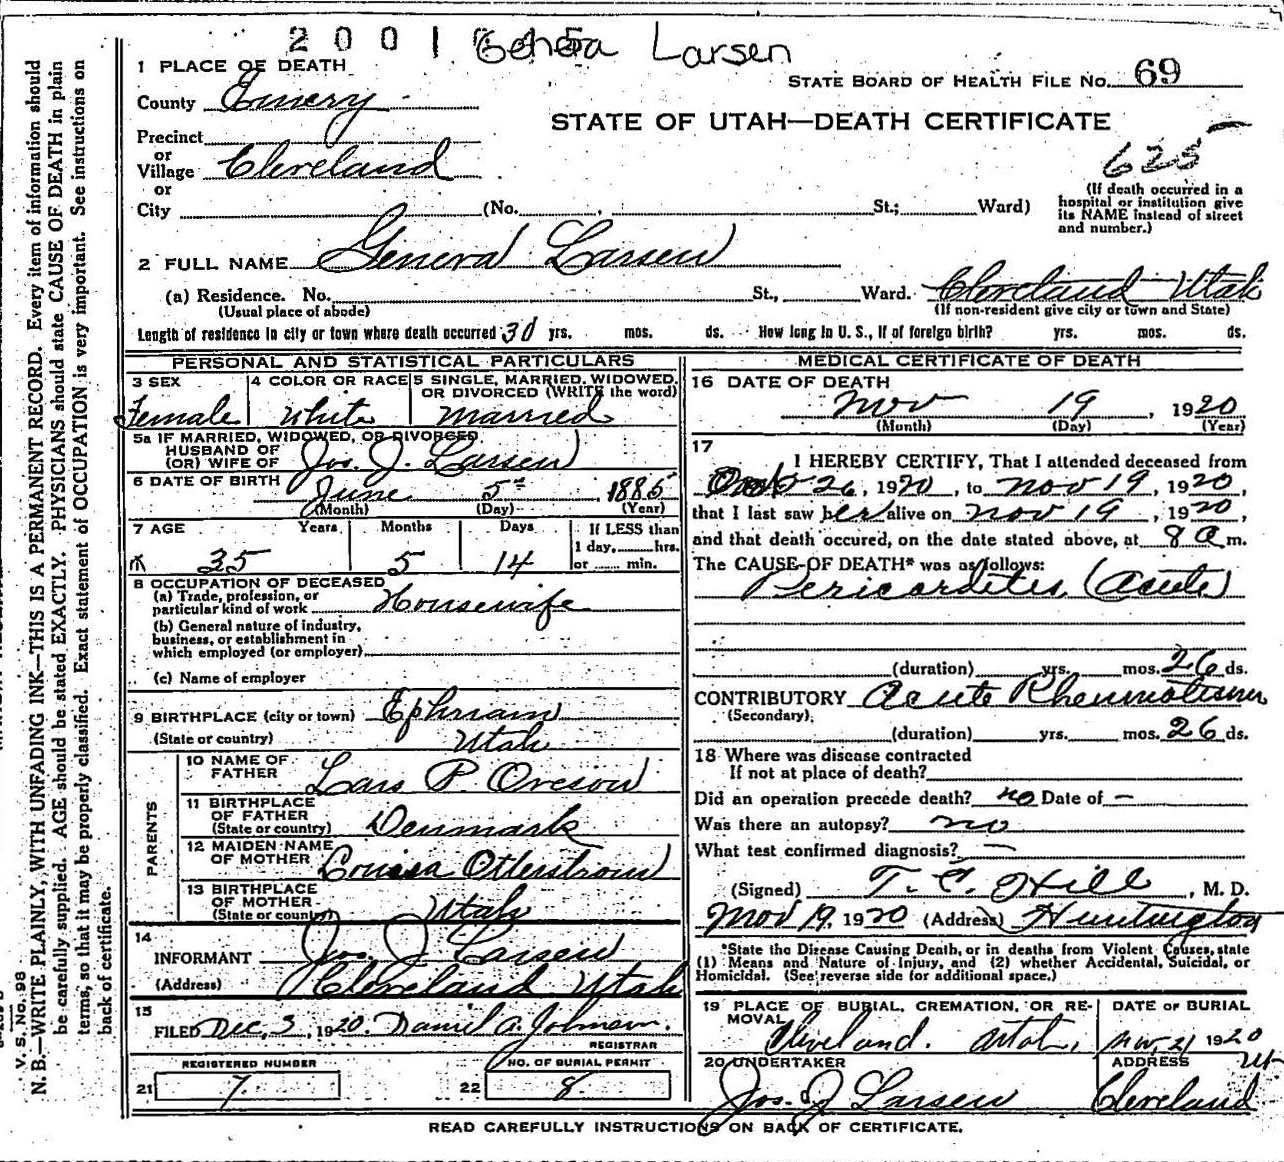 2001 Geneva Larsen
1 PLACE OF DEATH
STATE BOARD OF HEALTH FILE No. 69
County Emery
STATE OF UTAH—DEATH CERTIFICATE
Precinct
or
Village Cleveland
625
or
City (No. , St.; Ward)
(If death occurred in a
hospital or institution give
its NAME instead of street
and number.)
2 FULL NAME Geneva Larsen
(a) Residence. No. St., Ward. Cleveland Utah
(Usual place of abode) (If non-resident give city or town and State)
Length of residence in city or town where death occurred 30 yrs. mos. ds. How long in U. S., if of foreign birth? yrs. mos. ds.
PERSONAL AND STATISTICAL PARTICULARS
3 SEX 4 COLOR OR RACE 5 SINGLE, MARRIED, WIDOWED,
OR DIVORCED (WRITE the word)
Female White Married
5a IF MARRIED, WIDOWED, OR DIVORCED
HUSBAND OF
(OR) WIFE OF Jos. J. Larsen
6 DATE OF BIRTH
June 5th, 1885
(Month) (Day) (Year)
7 AGE Years Months Days If LESS than
1 day, hrs.
35 5 14 or min.
8 OCCUPATION OF DECEASED
(a) Trade, profession, or
particular kind of work Housewife
(b) General nature of industry,
business, or establishment in
which employed (or employer)
(c) Name of employer
9 BIRTHPLACE (city or town) Ephriam
(State or country) Utah
PARENTS
10 NAME OF
FATHER Lars P. Oveson
11 BIRTHPLACE
OF FATHER
(State or country) Denmark
12 MAIDEN NAME
OF MOTHER Louisa Otterstrom
13 BIRTHPLACE
OF MOTHER
(State or country) Utah
14
INFORMANT Jos. J. Larsen
(Address) Cleveland Utah
15
FILED Dec, 3, 1920. Daniel A. Johnson.
REGISTRAR
REGISTERED NUMBER NO. OF BURIAL PERMIT
21 7 22 8
MEDICAL CERTIFICATE OF DEATH
16 DATE OF DEATH
Nov 19, 1920
(Month) (Day) (Year)
17
I HEREBY CERTIFY, That I attended deceased from
26, 1920, to Nov 19, 1920,
that I last saw her alive on Nov 19, 1920,
and that death occured, on the date stated above, at 8 a m.
The CAUSE OF DEATH* was as follows:
Pericarditis (acute)
(duration) yrs. mos. 26 ds.
CONTRIBUTORY Acute Rheumatism
(Secondary)
(duration) yrs. mos. 26 ds.
18 Where was disease contracted
If not at place of death?
Did an operation precede death? no Date of —
Was there an autopsy? no
What test confirmed diagnosis? —
(Signed) T. C. Hill, M. D.
Nov 19, 1920 (Address) Huntington
*State the Disease Causing Death, or in deaths from Violent Causes, state
(1) Means and Nature of Injury, and (2) whether Accidental, Suicidal, or
Homicidal. (See reverse side for additional space.)
19 PLACE OF BURIAL, CREMATION, OR RE-
MOVAL
DATE OF BURIAL
Cleveland. Utah, Nov, 21 1920
20 UNDERTAKER ADDRESS Ut
Jos. J Larsen Cleveland
READ CAREFULLY INSTRUCTIONS ON BACK OF CERTIFICATE.
V. S. No. 98
N. B.—WRITE PLAINLY, WITH UNFADING INK—THIS IS A PERMANENT RECORD. Every item of information should
be carefully supplied. AGE should be stated EXACTLY. PHYSICIANS should state CAUSE OF DEATH in plain
terms, so that it may be properly classified. Exact statement of OCCUPATION is very important. See instructions on
back of certificate.